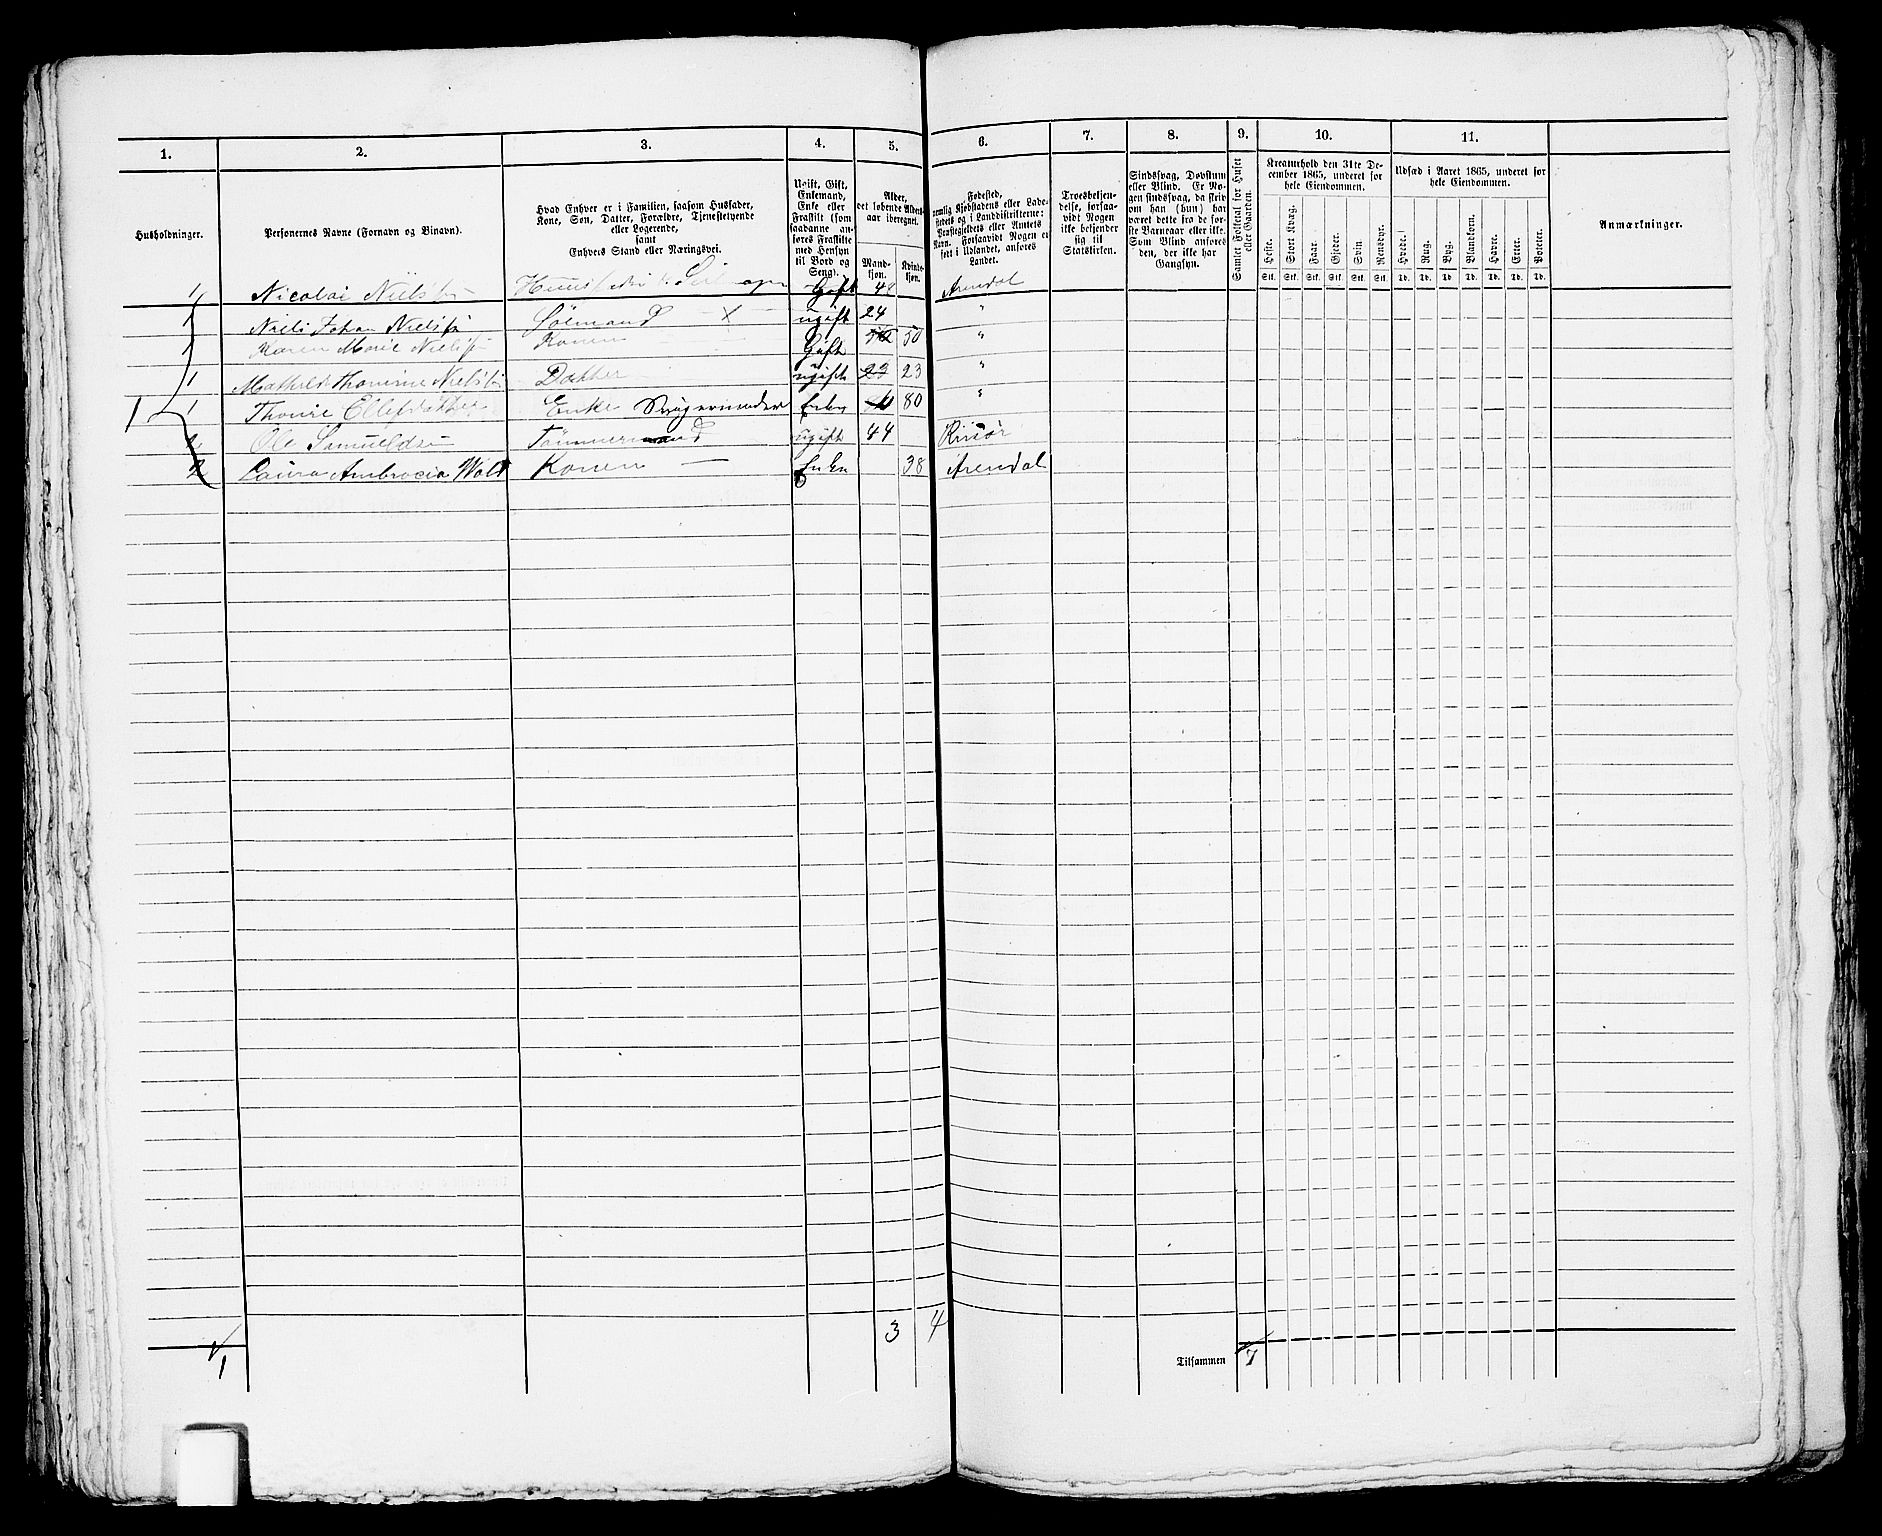 1. 2. 3. 4. 5. 6. 7. 8. 9. 10. 11.
Husholdninger.
Personernes Navne (Fornavn og Binavn).
Hvad Enhver er i Familien, saasom Husfader,
Kone, Søn, Datter, Forældre, Tjenestetyende
eller Logerende,
samt
Enhvers Stand eller Næringsvei.
Ugift, Gift,
Enkemand,
Enke eller
Fraskilt (som
saadanne an-
føres Fraskilte
med Hensyn
til Bord og
Seng).
Alder,
det løbende Alders-
aar iberegnet.
Mand-
kjøn.
Kvinde-
kjøn.
Fødested,
nemlig Kjøbstadens eller Lade-
stedets og i Landdistrikterne:
Præstegjeldets eller Amtets
Navn. Forsaavidt Nogen er
født i Udlandet, anføres
Landet.
Troesbekjen-
delse, forsaa-
vidt Nogen
ikke bekjender
sig til
Statskirken.
Sindssvag, Døvstum
eller Blind. Er No-
gen sindssvag, da skriv
om han (hun) har
været dette fra de før-
ste Barneaar eller ikke.
Som Blind anføres
den, der ikke har
Gangsyn.
Samlet Folketal for Huset
eller Gaarden.
Kreaturhold den 31te De-
cember 1865, underet for
hele Eiendommen.
Heste. Stort Kvæg. Faar. Gjeder. Svin. Rensdyr.
Stk. Stk. Stk. Stk. Stk. Stk.
Udsæd i Aaret 1865, underet for
hele Eiendommen.
Hvede. Rug. Byg. Blandkorn. Havre. Erter. Poteter.
Td. Td. Td. Td. Td. Td. Td.
Anmærkninger.
1 Nicolai Nielsen Gift 48 Arendal
1 Niels Johan Nielsen Sømand x ugift 24 "
1 Karen Marie Nielsen Konen Gift 50 "
1 Mathilde Thomine Nielsen Datter ugift 23 23 "
1 1 Ellefsdatter Enke Svigermoder Enke 80 "
2 Ole Samuelsen Tømmermand ugift 44 Risør
2 Laura Ambrocia Wold Konen — Enke 38 Arendal
3 4
1 Tilsammen 7